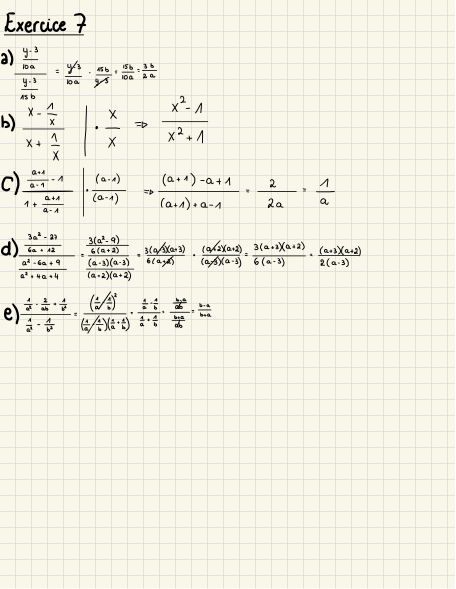 Exercice 7
a) ((y-3)/(10a)) / ((y-3)/(15b)) = (y-3)/(10a) · (15b)/(y-3) = (15b)/(10a) = (3b)/(2a)
b) (x - 1/x) / (x + 1/x) | · x/x ⇒ (x² - 1)/(x² + 1)
c) ((a+1)/(a-1) - 1) / (1 + (a+1)/(a-1)) | · (a-1)/(a-1) ⇒ ((a+1) - a + 1)/((a+1) + a - 1) = 2/(2a) = 1/a
d) ((3a² - 27)/(6a + 12)) / ((a² - 6a + 9)/(a² + 4a + 4)) = (3(a² - 9)/(6(a+2))) / (((a-3)(a-3))/((a+2)(a+2))) = (3(a-3)(a+3))/(6(a+2)) · ((a+2)(a+2))/((a-3)(a-3)) = (3(a+3)(a+2))/(6(a-3)) = ((a+3)(a+2))/(2(a-3))
e) (1/a² - 2/ab + 1/b²) / (1/a² - 1/b²) = (1/a - 1/b)² / ((1/a - 1/b)(1/a + 1/b)) = (1/a - 1/b) / (1/a + 1/b) = ((b-a)/ab) / ((b+a)/ab) = (b-a)/(b+a)